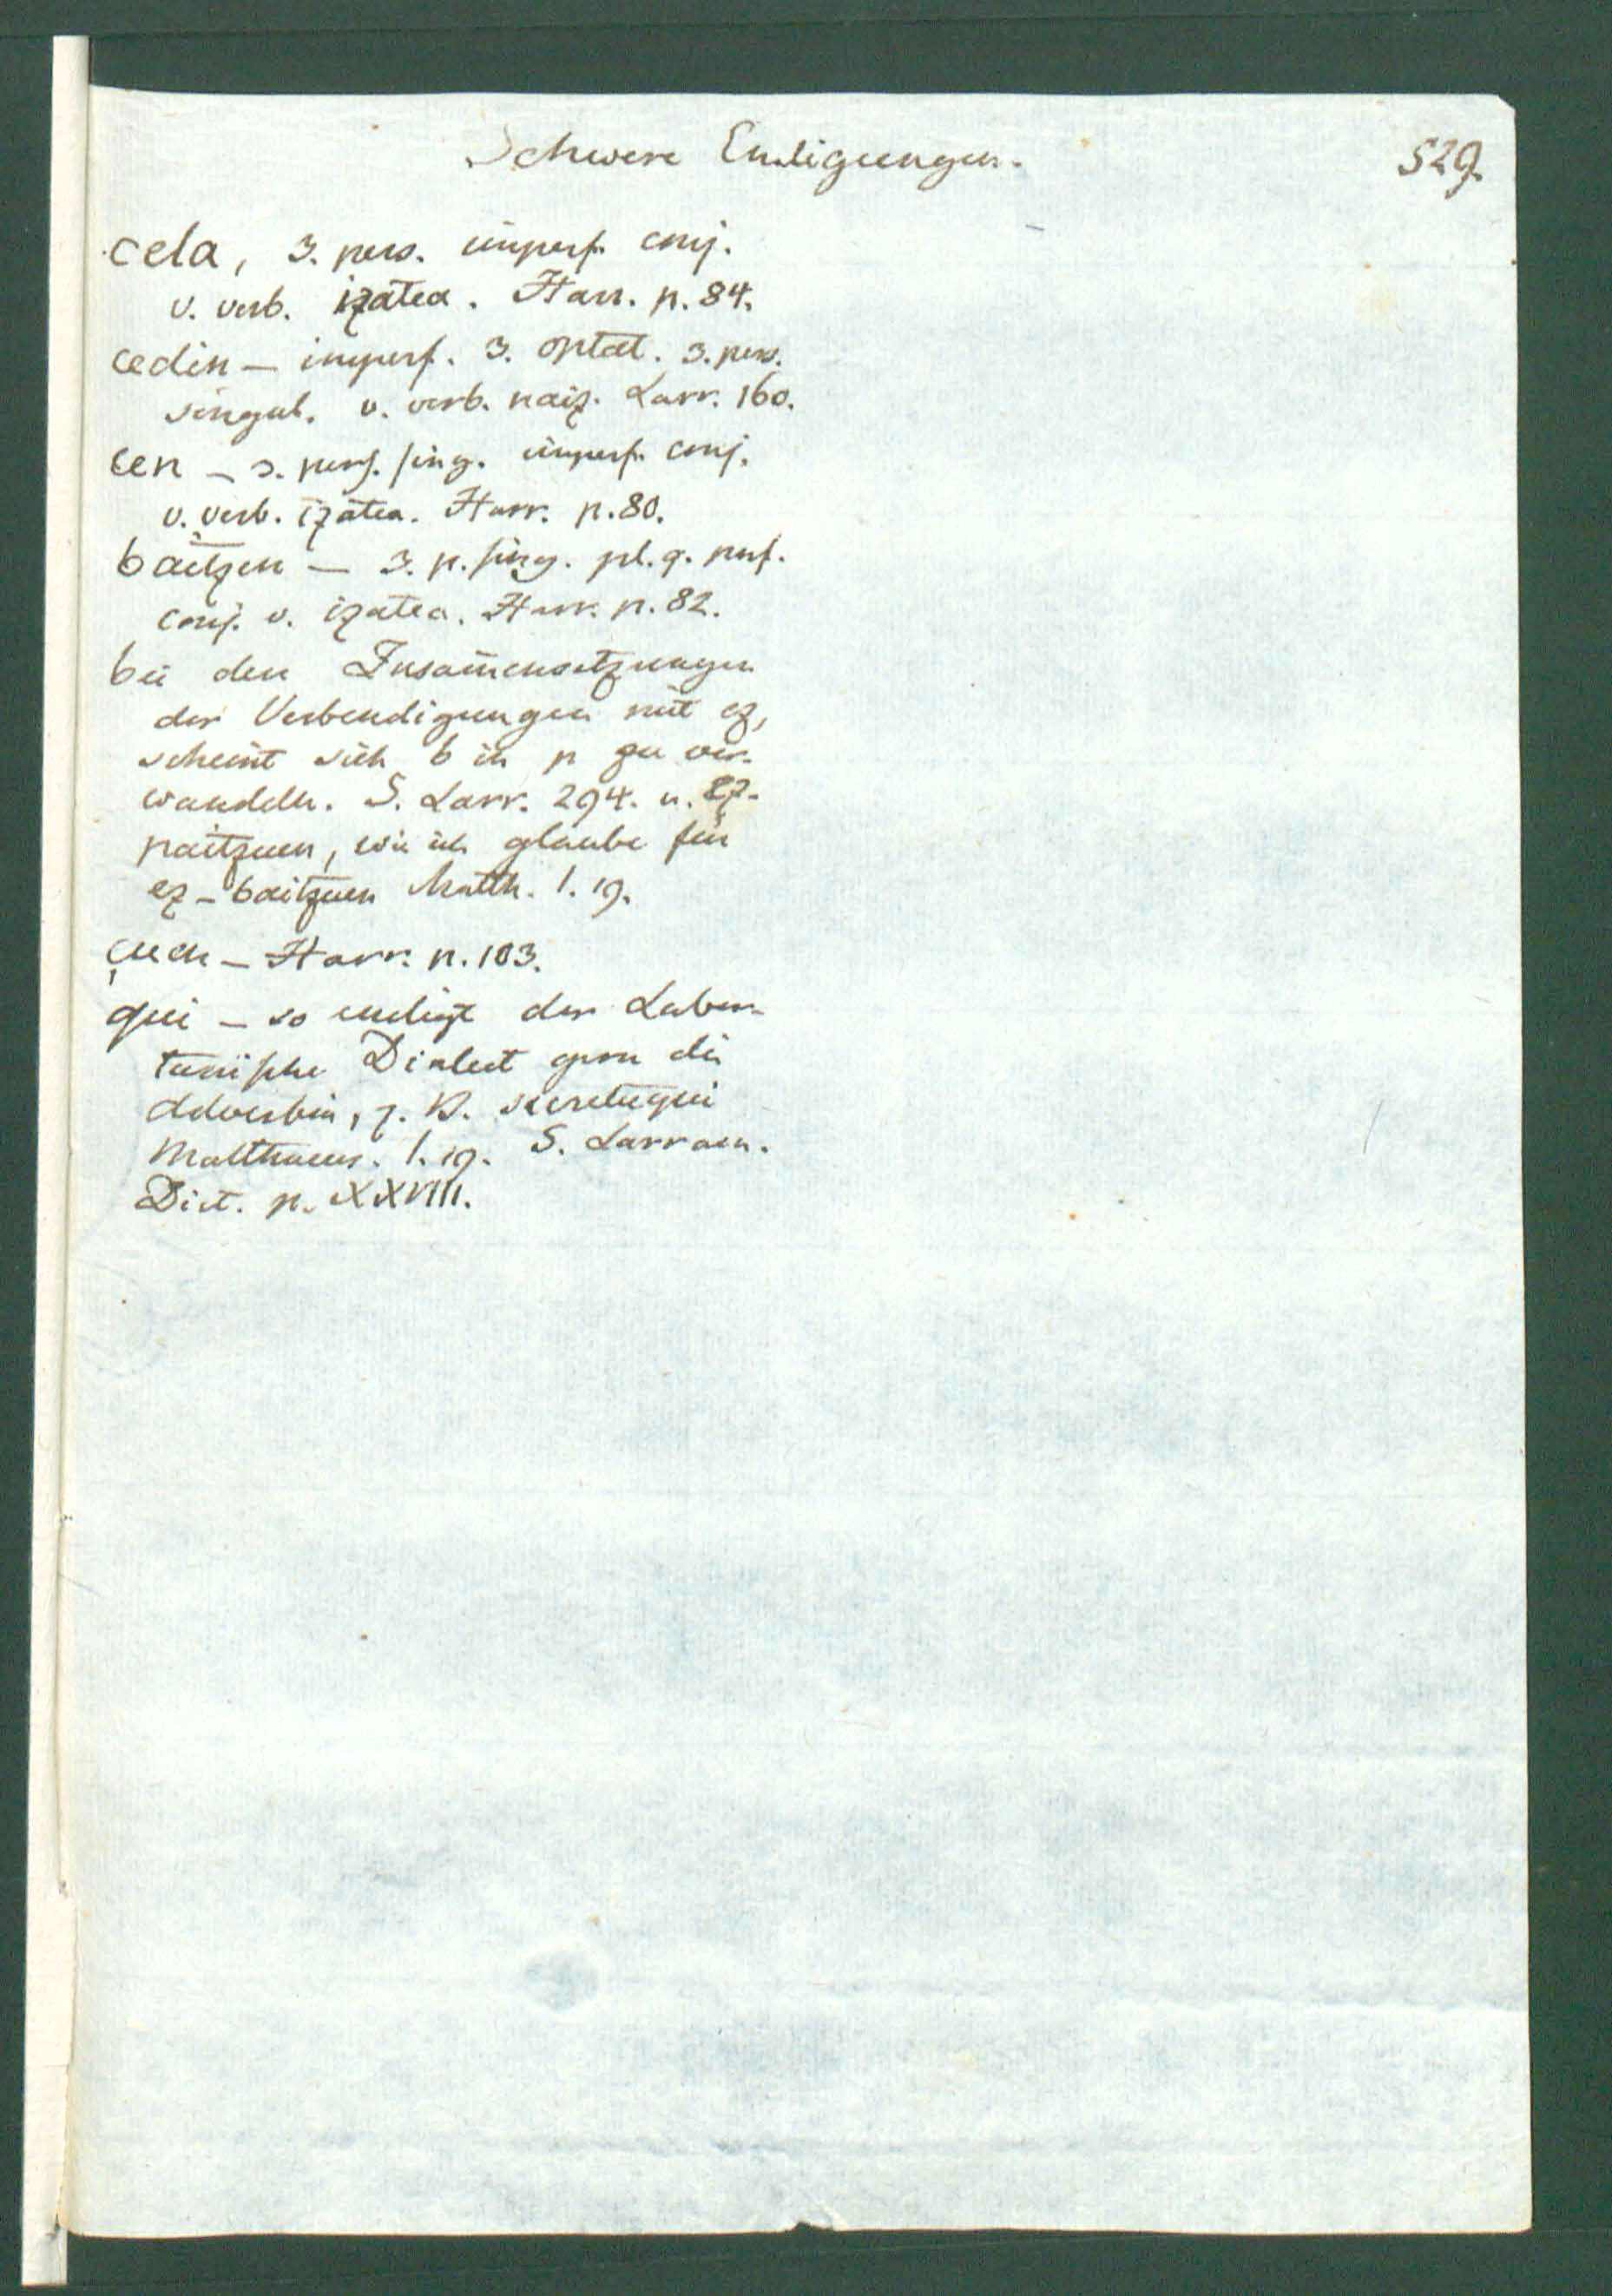 Schwere Endigungen.
529.
cela, 3. pers. imperf. conj.
v. verb. izatea. Harr. p. 84.
cedin – imperf. 3. optat. 3. pers.
singul. v. verb. naiz. Larr. 160.
cen – 3. pers. sing. imperf. conj.
v. verb. izatea. Harr. p. 80.
baitzen – 3. p. sing. pl. q. perf.
conj. v. izatea. Harr. p. 82.
bei den Zusam̄ensetzungen
der Verbendigungen mit ez,
scheint sich b in p zu ver-
wandeln. S. Larr. 294. u. ez-
paitzuen, wie ich glaube für
ez-baitzuen Matth. 1. 19.
çuen – Harr. p. 103.
qui – so endigt der Labor-
tanische Dialect gern die
Adverbia, z. B. secretuqui
Matthaeus. 1. 19. S. Larram.
Dict. p. XXVIII.